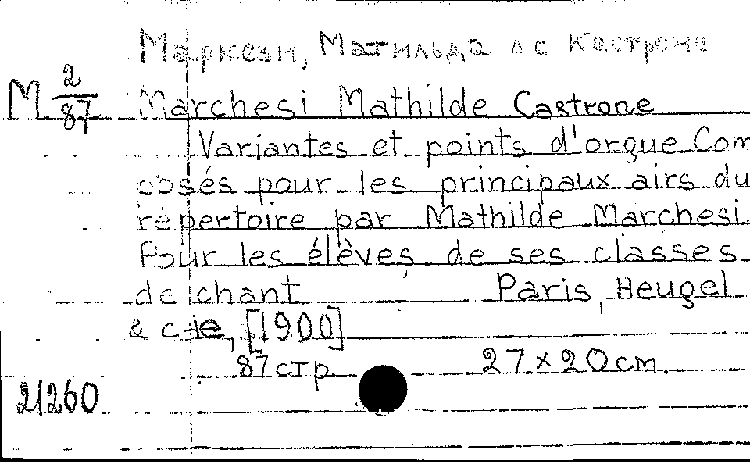 Маркези, Матильда де Кастроне
M 2/87 Marchesi Mathilde Castrone
Variantes et points d'orgue Com
osés pour les principaux airs du
répertoire par Mathilde Marchesi
Pour les élèves de ses classes
de chant Paris, Heugel
& cie, [1900]
87 стр 27 x 20 cm
21260